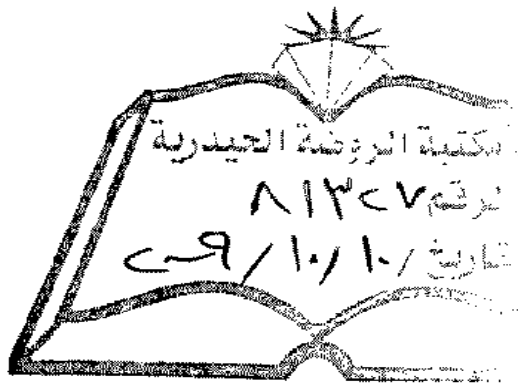 مكتبة الروضة الحيدرية
الرقم ٨١٣٢٧
التاريخ ١٠/١٠/٢٠٠٩